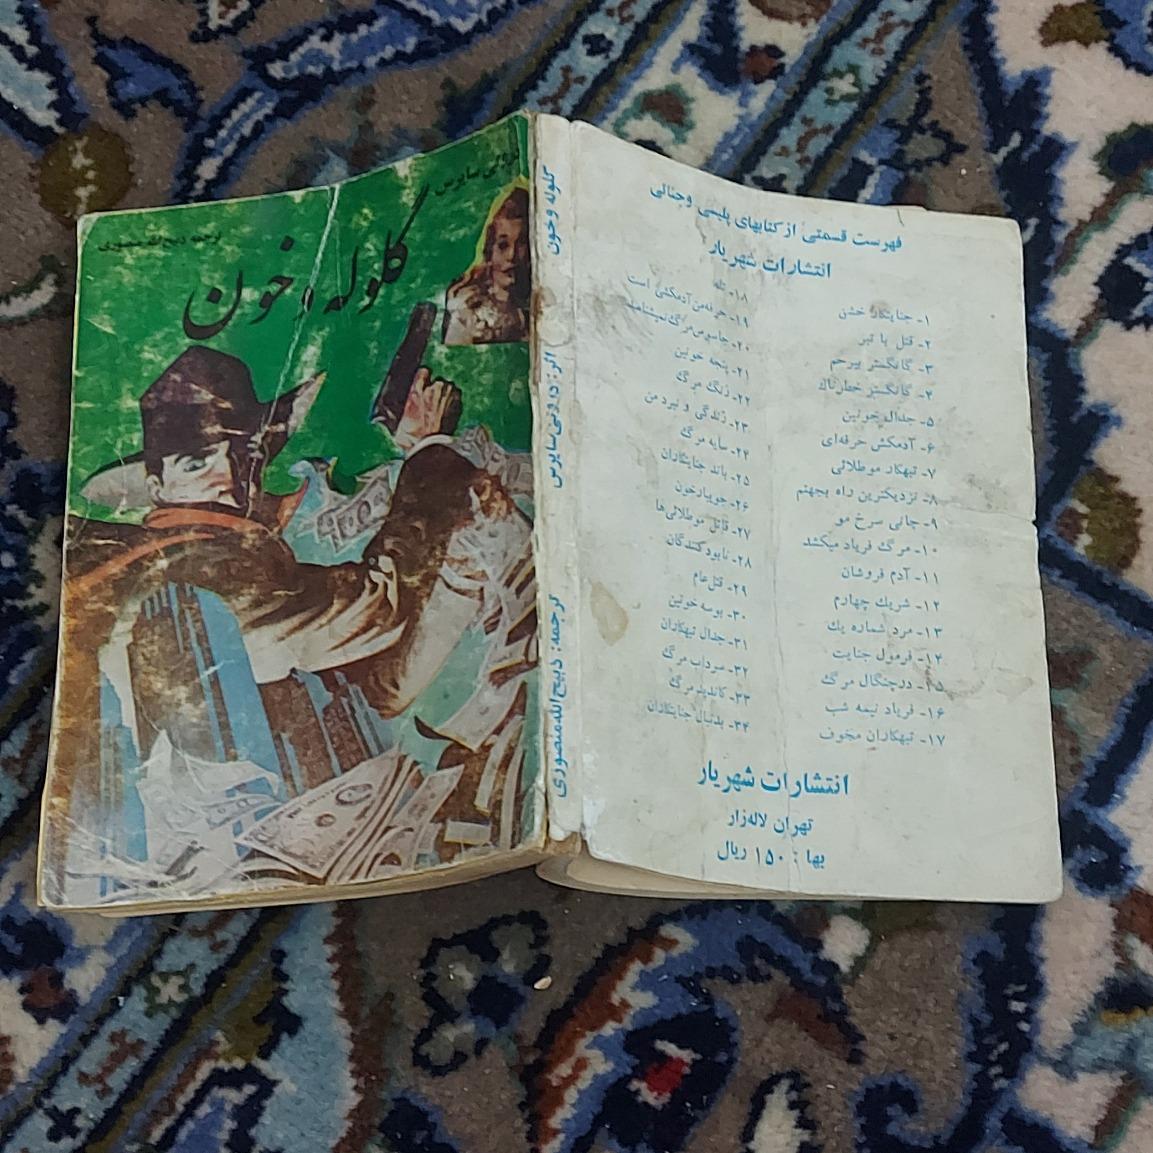 دروتی سایرس
ترجمه ذبیح‌الله منصوری
گلوله و خون
گلوله و خون
اثر: دروتی سایرس
ترجمه: ذبیح‌الله منصوری
فهرست قسمتی از کتابهای پلیسی وجنائی
انتشارات شهریار
۱- جنایتکار خشن
۲- قتل با تبر
۳- گانگستر بیرحم
۴- گانگستر خطرناك
۵- جدال خونین
۶- آدمکش حرفه‌ای
۷- تبهکار موطلائی
۸- نزدیکترین راه بجهنم
۹- جانی سرخ مو
۱۰- مرگ فریاد میکشد
۱۱- آدم فروشان
۱۲- شریك چهارم
۱۳- مرد شماره یك
۱۴- فرمول جنایت
۱۵- درچنگال مرگ
۱۶- فریاد نیمه شب
۱۷- تبهکاران مخوف
۱۸- تله
۱۹- حرفه‌من آدمکشی است
۲۰- جاسوس‌مرگ‌نمیشناسد
۲۱- پنجه خونین
۲۲- زنگ مرگ
۲۳- زندگی و نبرد من
۲۴- سایه مرگ
۲۵- باند جنایتکاران
۲۶- جویبارخون
۲۷- قاتل موطلائی‌ها
۲۸- نابودکنندگان
۲۹- قتل‌عام
۳۰- بوسه خونین
۳۱- جدال تبهکاران
۳۲- سرداب مرگ
۳۳- کاندید مرگ
۳۴- بدنبال جنایتکاران
انتشارات شهریار
تهران لاله‌زار
بها : ۱۵۰ ریال